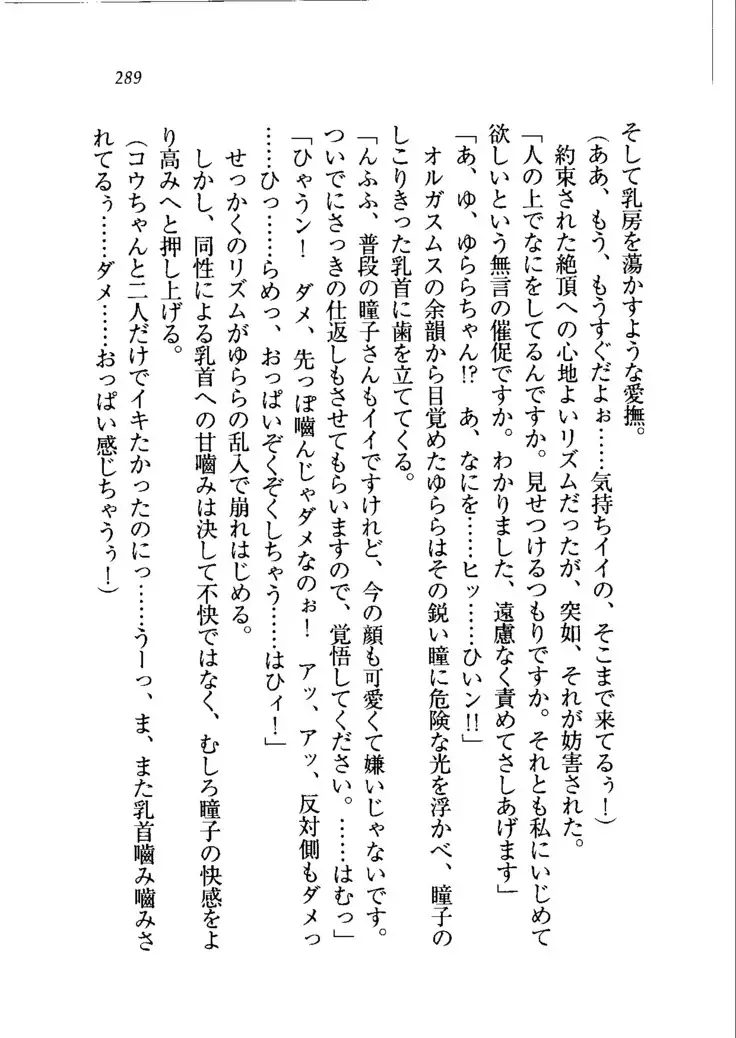 289
そして乳房を蕩かすような愛撫。
（ああ、もう、もうすぐだよぉ……気持ちイイの、そこまで来てるぅ！）
約束された絶頂への心地よいリズムだったが、突如、それが妨害された。
「人の上でなにをしてるんですか。見せつけるつもりですか。それとも私にいじめて
欲しいという無言の催促ですか。わかりました、遠慮なく責めてさしあげます」
「あ、ゆ、ゆららちゃん!?　あ、なにを……ヒッ……ひいン!!」
オルガスムスの余韻から目覚めたゆららはその鋭い瞳に危険な光を浮かべ、瞳子の
しこりきった乳首に歯を立ててくる。
「んふふ、普段の瞳子さんもイイですけれど、今の顔も可愛くて嫌いじゃないです。
ついでにさっきの仕返しもさせてもらいますので、覚悟してください。……はむっ」
「ひゃうン！　ダメ、先っぽ嚙んじゃダメなのぉ！　アッ、アッ、反対側もダメっ
……ひっ……らめっ、おっぱいぞくぞくしちゃう……はひィ！」
せっかくのリズムがゆららの乱入で崩れはじめる。
しかし、同性による乳首への甘嚙みは決して不快ではなく、むしろ瞳子の快感をよ
り高みへと押し上げる。
（コウちゃんと二人だけでイキたかったのにっ……うーっ、ま、また乳首嚙み嚙みさ
れてるぅ……ダメ……おっぱい感じちゃうぅ！）